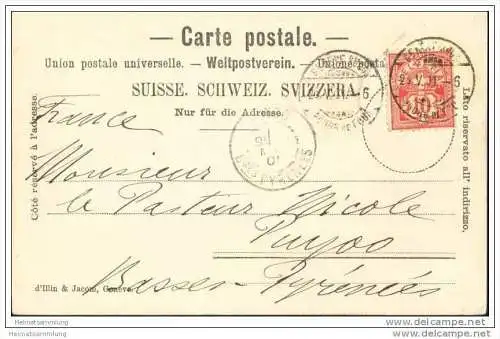 — Carte postale. —
Union postale universelle. — Weltpostverein. — Unione postale
SUISSE. SCHWEIZ. SVIZZERA.
Nur für die Adresse.
Côté réservé à l'adresse.
Lato riservato all' indirizzo.
France
Monsieur
le Pasteur Nicole
Puyoo
Basses-Pyrénées
d'Illin & Jaconi, Genève.
10
PYRÉNÉES
Heimatsammlung
Heimatsammlung
Heimatsammlung
Heimatsammlung